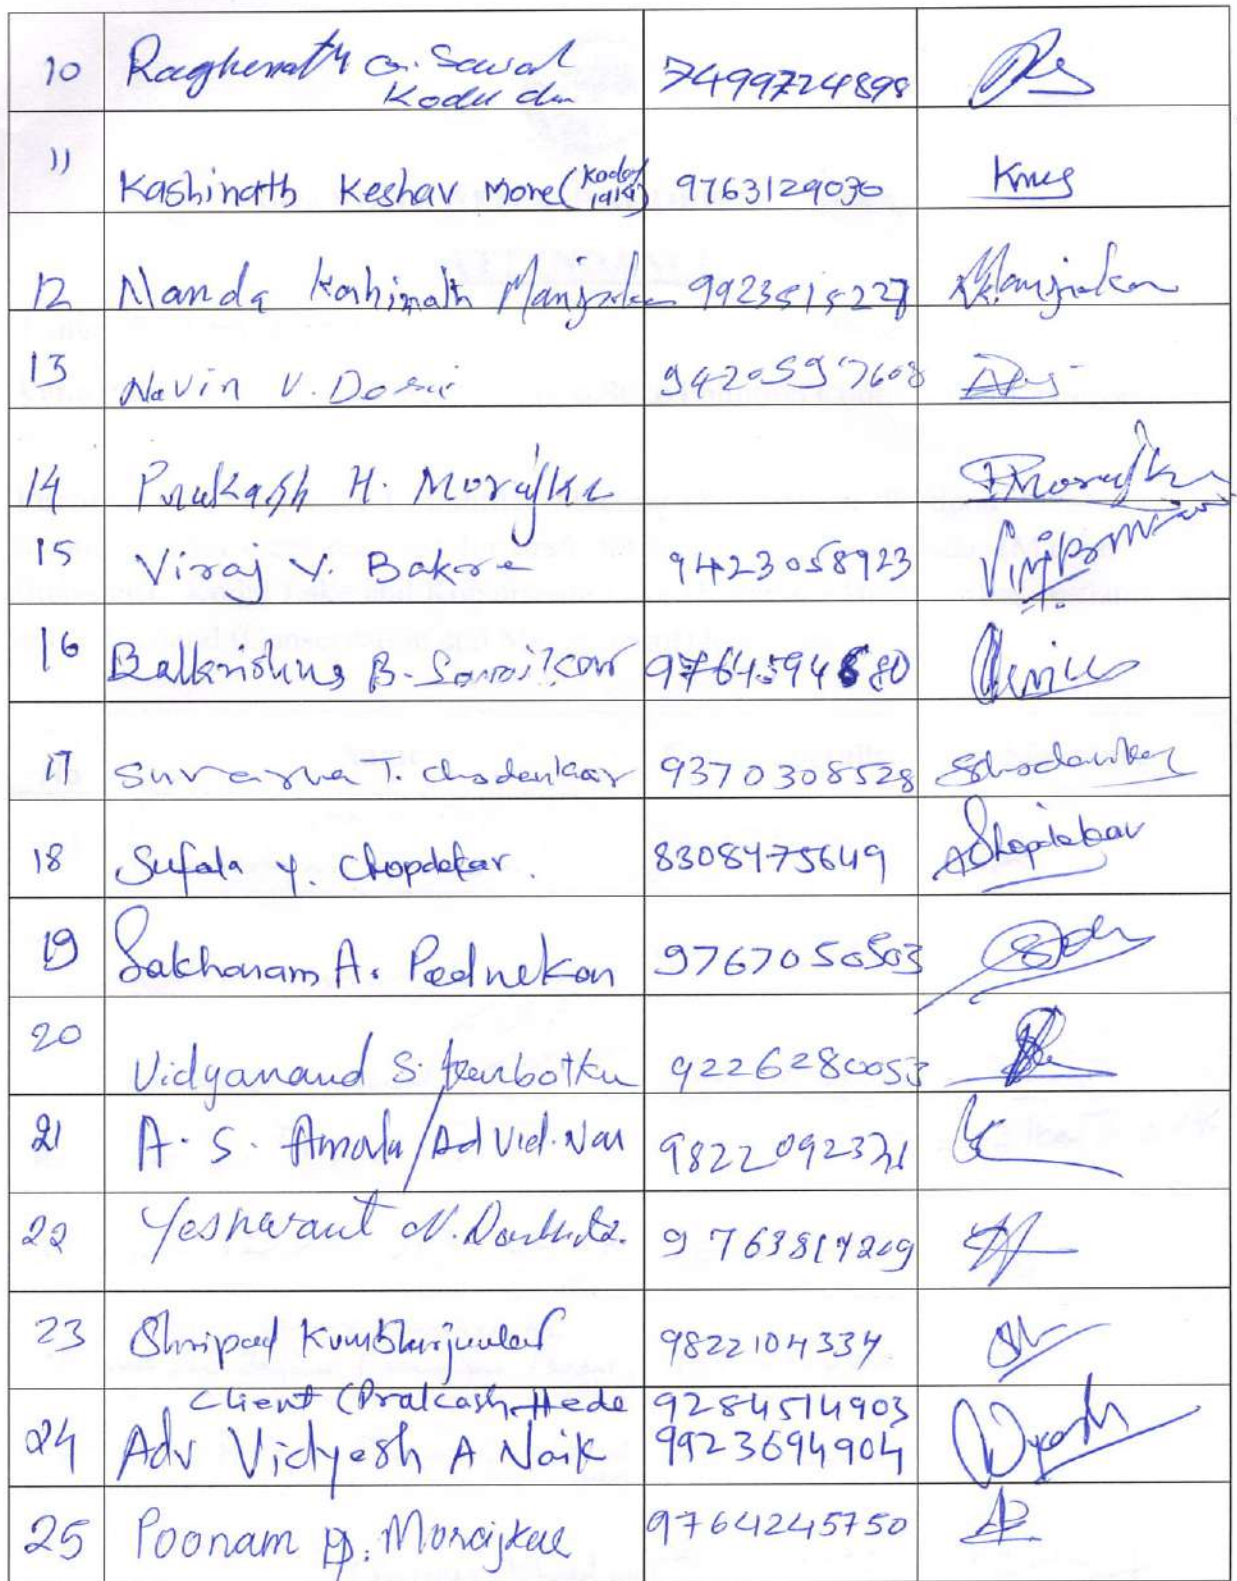 10 Raghunath G. Sawal 7499724898
Kodal
11 Kashinath Keshav More (Kodal 9763129030
12 Nanda Kashinath Manjrekar 9923515227 Manjrekar
13 Navin V. Desai 9420597608
14 Prakash H. Morajkar PMorajkar
15 Viraj V. Bakre 9423058923
16 Balkrishna B. Sawaikar 9764594680
17 Suvarna T. Chodankar 9370308528 SChodankar
18 Sufala Y. Chopdekar. 8308475649 SChopdekar
19 Sakharam A. Pednekar 9767050503
20 Vidyanand S. 9226280053
21 A. S. Amonkar/Ad Vid. Nar 9822092321
22 Yeshwant N. 9763817209
23 Shripad Kumbharjuvekar 9822104334
Client (Pralcash Hede 9284514903
24 Adv Vidyesh A Naik 9923694904
25 Poonam P. Morajkar 9764245750